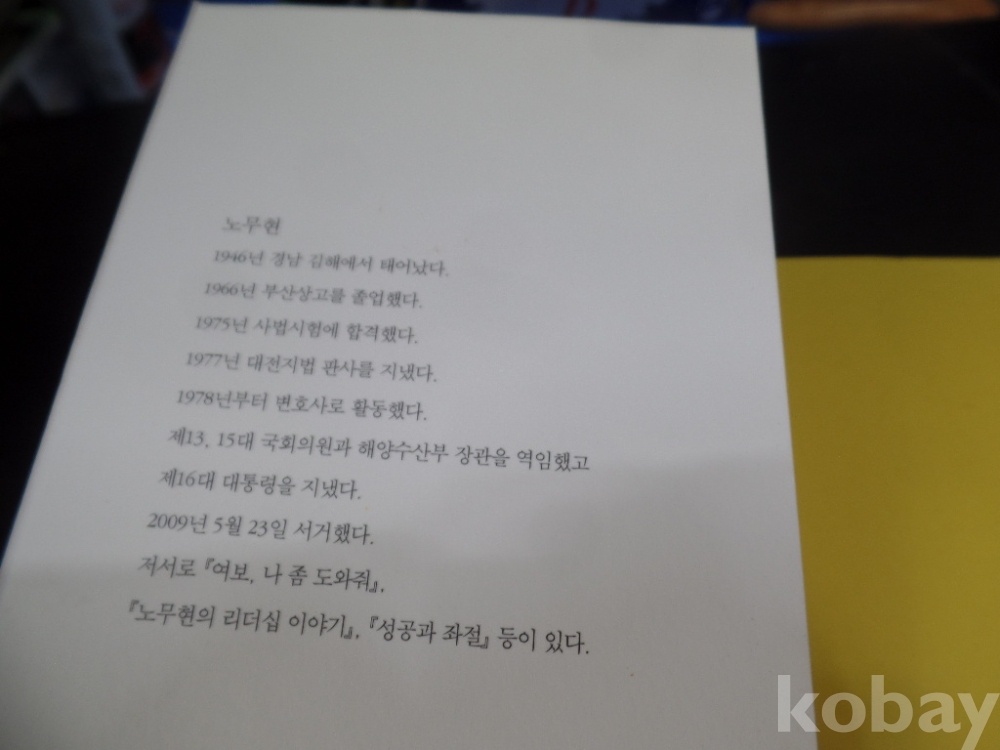 노무현
1946년 경남 김해에서 태어났다.
1966년 부산상고를 졸업했다.
1975년 사법시험에 합격했다.
1977년 대전지법 판사를 지냈다.
1978년부터 변호사로 활동했다.
제13, 15대 국회의원과 해양수산부 장관을 역임했고
제16대 대통령을 지냈다.
2009년 5월 23일 서거했다.
저서로 『여보, 나 좀 도와줘』,
『노무현의 리더십 이야기』, 『성공과 좌절』 등이 있다.
kobay